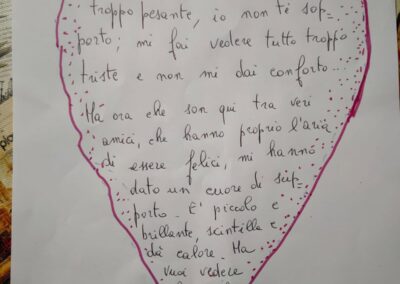 troppo pesante, io non te sop=
porto; mi fai vedere tutto troppo
triste e non mi dai conforto...
Ma ora che son qui tra veri
amici, che hanno proprio l'aria
di essere felici, mi hanno
dato un cuore di sup=
porto. E' piccolo e
brillante, scintilla e
dà calore. Ma
vuoi vedere